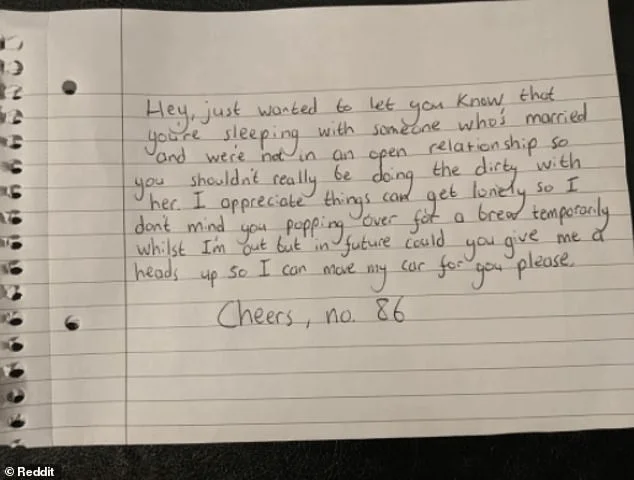 Hey, just wanted to let you know that
you're sleeping with someone who's married
and we're not in an open relationship so
you shouldn't really be doing the dirty with
her. I appreciate things can get lonely so I
don't mind you popping over for a brew temporarily
whilst I'm out but in future could you give me a
heads up so I can move my car for you please.
Cheers, no. 86
© Reddit